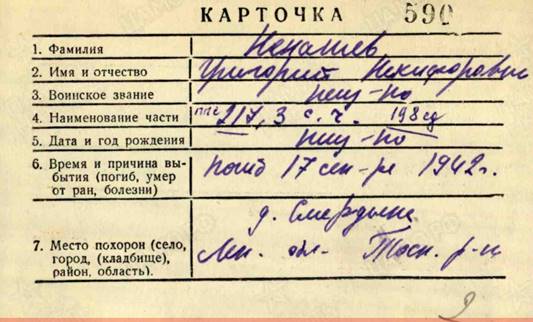 КАРТОЧКА 590
1. Фамилия Ненашев
2. Имя и отчество Григорий Никифорович
3. Воинское звание неиз-но
4. Наименование части ппс 217, 3 с.ч. 198 сд
5. Дата и год рождения неиз-но
6. Время и причина вы- погиб 17 сен-ря 1942 г.
бытия (погиб, умер
от ран, болезни)
д. Смердыня
7. Место похорон (село, Лен. обл. Тосн. р-н
город, (кладбище),
район, область).